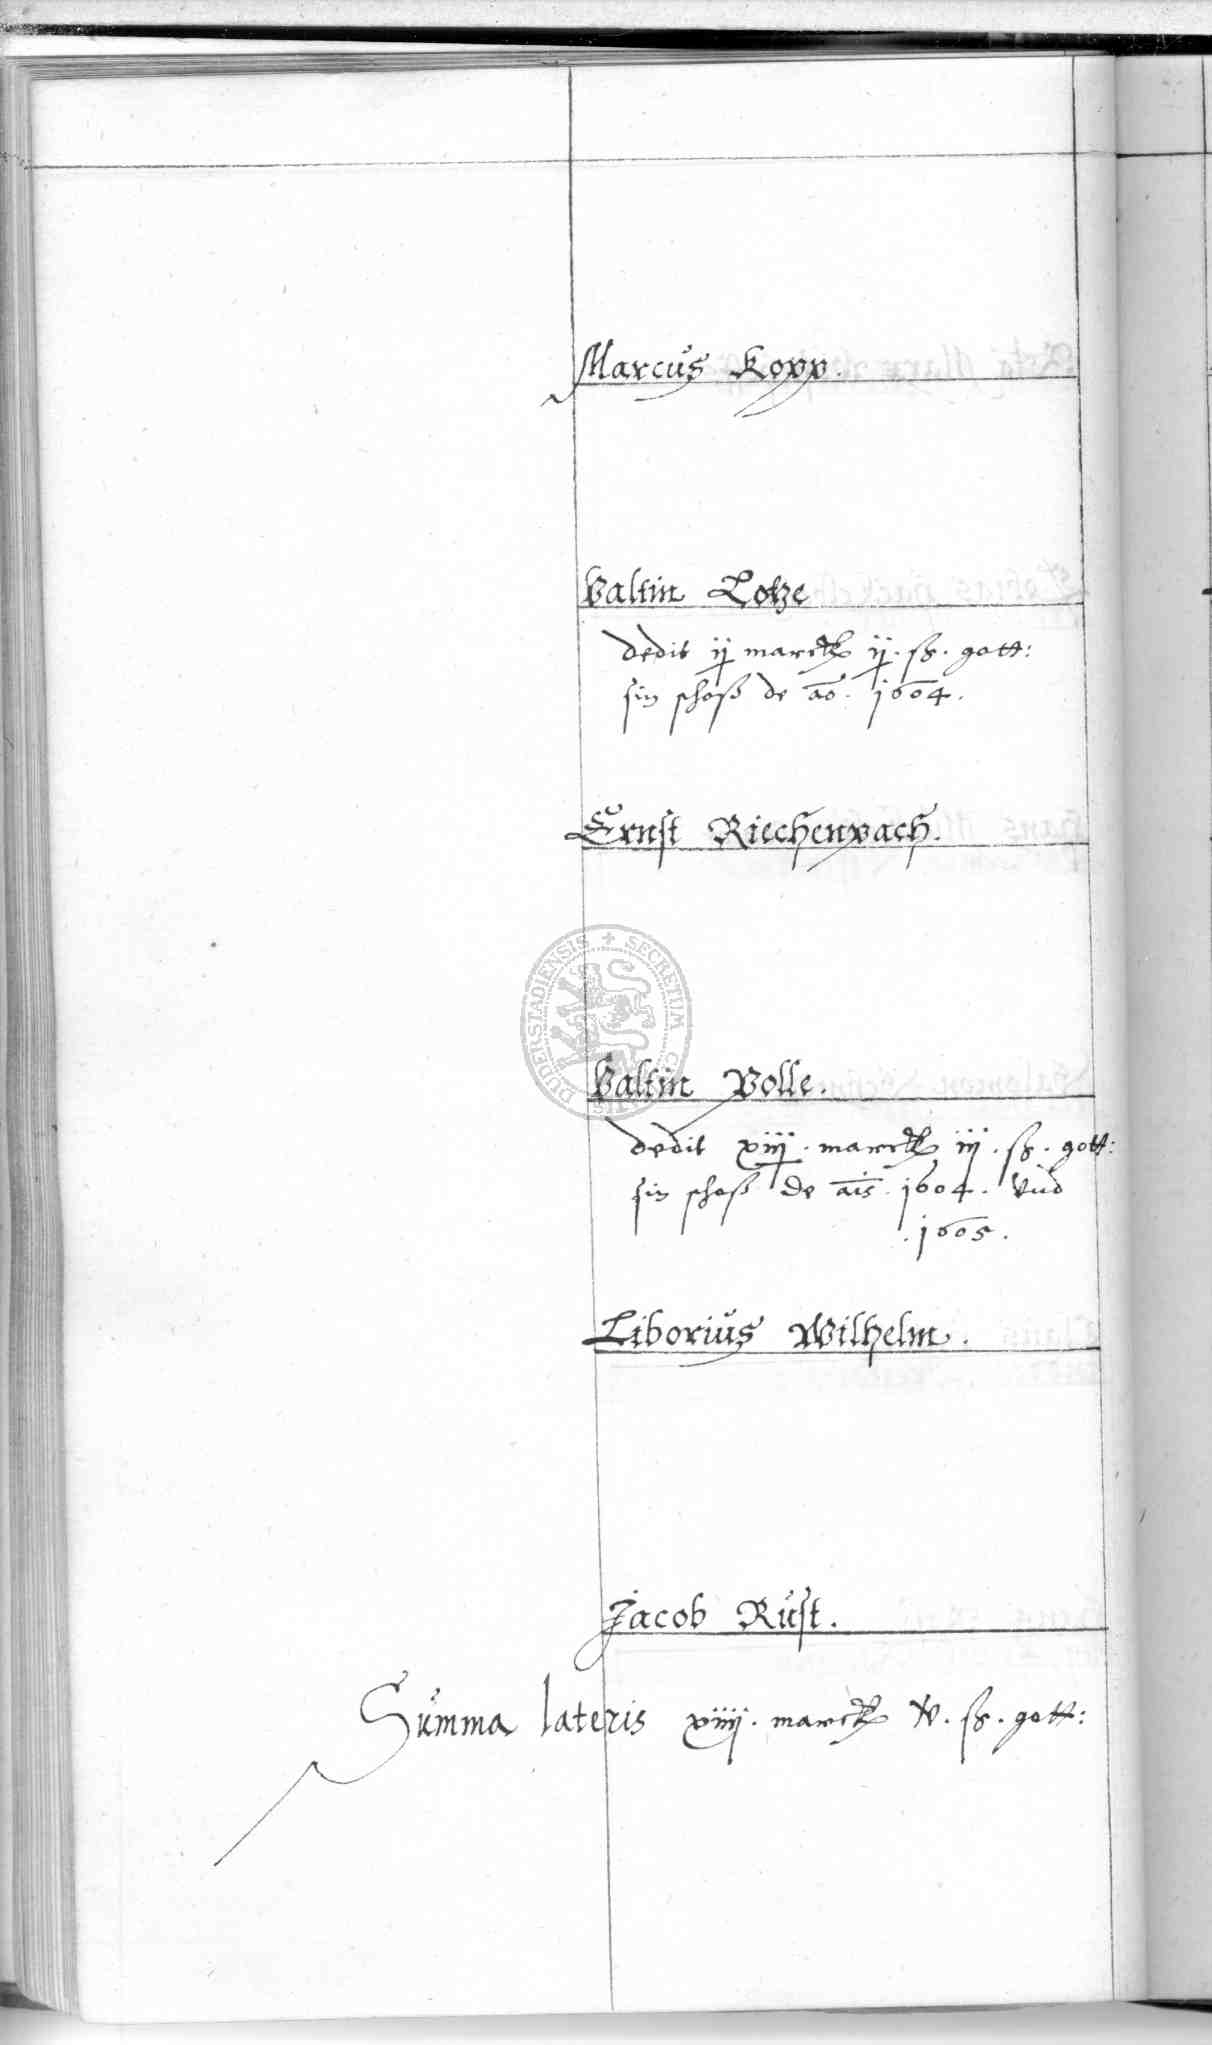 Marcus Kopp.
Valtin Lotze
dedit ij marck ij. ß. gott:
sin schoß de ao. 1604.
Ernst Riechenpach.
SECRETUM
DUDERSTADIENSIS
Valtin Volle.
dedit xiij. marck iij. ß. gott:
sin schoß de ais. 1604. vnd
.1605.
Liborius Wilhelm.
Jacob Rust.
Summa lateris xiiij. marck v. ß. gott: